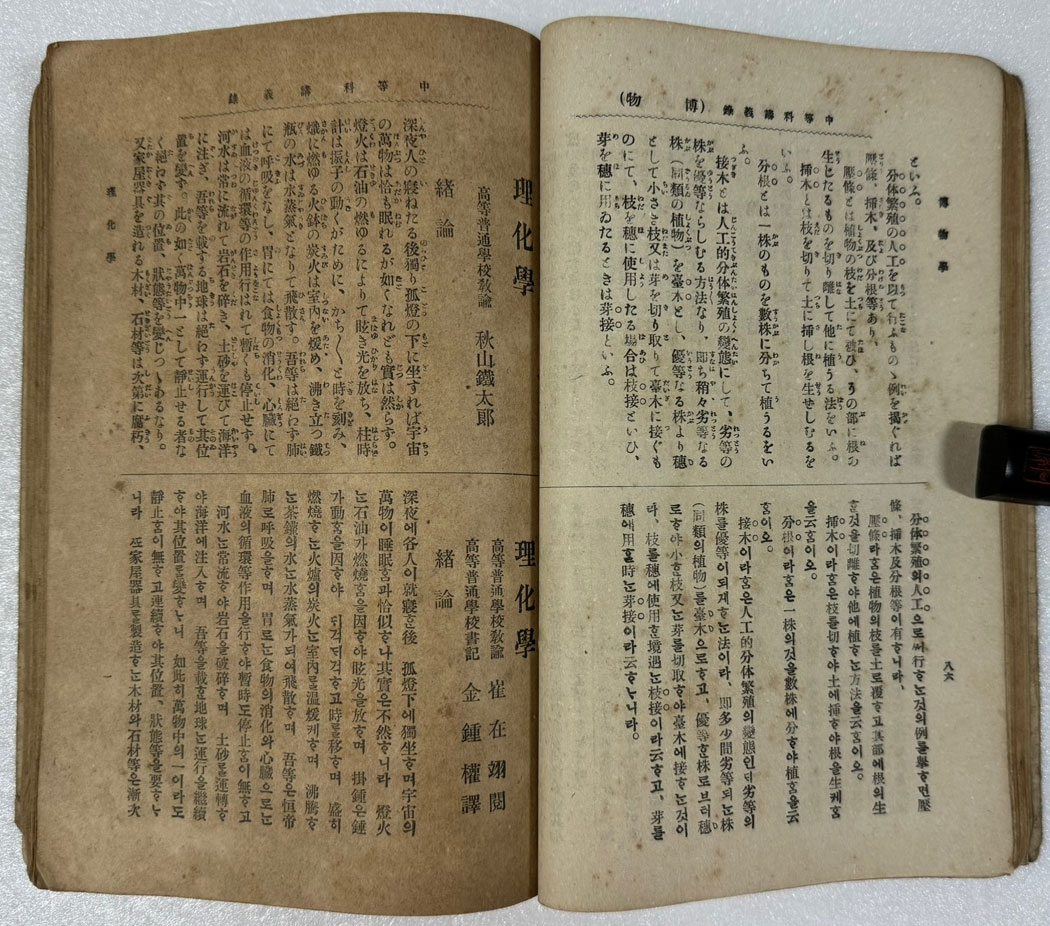 中等科講義錄（博物）
博物學
八六
といふ。
分体繁殖の人工を以て行ふものゝ例を揭ぐれば
壓條、揷木、及び分根等あり、
壓條とは植物の枝を土にて被ひ、その部に根の
生じたるものを切り離して他に植うる法をいふ。
揷木とは枝を切りて土に揷し根を生せしむるを
いふ。
分根とは一株のものを數株に分ちて植うるをい
ふ。
接木とは人工的分体繁殖の變態にして、劣等の
株を優等ならしむる方法なり、即ち稍々劣等なる
株（同類の植物）を臺木とし、優等なる株より穗
として小さき枝又は芽を切り取りて臺木に接ぐも
のにて、枝を穗に使用したる塲合は枝接といひ、
芽を穗に用ゐたるときは芽接といふ。
分体繁殖의人工으로써行ᄒᆞᄂᆞᆫ것의例를擧ᄒᆞ면壓
條、揷木及分根等이有ᄒᆞ니라、
壓條라홈은植物의枝를土로覆ᄒᆞ고其部에根의生
ᄒᆞᆫ것을切離ᄒᆞ야他에植ᄒᆞᄂᆞᆫ方法을云홈이오。
揷木이라홈은枝를切ᄒᆞ야土에揷ᄒᆞ야根을生케홈
을云홈이오。
分根이라홈은一株의것을數株에分ᄒᆞ야植홈을云
홈이오。
接木이라홈은人工的分体繁殖의變態인ᄃᆡ劣等의
株를優等이되게ᄒᆞᄂᆞᆫ法이라、即多少間劣等되ᄂᆞᆫ株
（同類의植物）를臺木으로ᄒᆞ고、優等ᄒᆞᆫ株로브터穗
로ᄒᆞ야小ᄒᆞᆫ枝又ᄂᆞᆫ芽를切取ᄒᆞ야臺木에接ᄒᆞᄂᆞᆫ것이
라、枝를穗에使用ᄒᆞᆫ境遇ᄂᆞᆫ枝接이라云ᄒᆞ고、芽를
穗에用ᄒᆞᆫ時ᄂᆞᆫ芽接이라云ᄒᆞᄂᆞ니라。
中等科講義錄
理化學
高等普通學校敎諭　秋山鐵太郎
緖論
深夜人の寢ねたる後獨り孤燈の下に坐すれば宇宙
の萬物は恰も眠れるが如くなれども實は然らす。
燈火は石油の燃ゆるによりて眩き光を放ち、柱時
計は振子の動くがために、かち〳〵と時を刻み、
熾に燃ゆる火鉢の炭火は室內を煖め、沸き立つ鐵
瓶の水は水蒸氣となりて飛散す。吾等は絕わす肺
にて呼吸をなし、胃にては食物の消化、心臟にて
は血液の循環等の作用行はれて暫くも停止せす。
河水は常に流れて岩石を碎き、土砂を運びて海洋
に注ぎ、吾等を載する地球は絕わず運行して其位
置を變ず。此の如く萬物中一として靜止せる者な
く絕わす其の位置、狀態等を變じつゝあるなり。
又家屋器具を造れる木材、石材等は次第に腐朽、
理化學
高等普通學校敎諭　崔在翊閱
高等普通學校書記　金鍾權譯
緖論
深夜에各人이就寢ᄒᆞᆫ後　孤燈下에獨坐ᄒᆞ며宇宙의
萬物이睡眠홈과恰似ᄒᆞ나其實은不然ᄒᆞ니라　燈火
ᄂᆞᆫ石油가燃燒홈을因ᄒᆞ야眩光을放ᄒᆞ며　掛鍾은錘
가動홈을因ᄒᆞ야　ᄃᆡ걱ᄃᆡ걱ᄒᆞ고時를移ᄒᆞ며　盛히
燃燒ᄒᆞᄂᆞᆫ火爐의炭火ᄂᆞᆫ室內를温煖케ᄒᆞ며　沸騰ᄒᆞ
ᄂᆞᆫ茶鑵의水ᄂᆞᆫ水蒸氣가되여飛散ᄒᆞ며　吾等은恒常
肺로呼吸을ᄒᆞ며　胃로ᄂᆞᆫ食物의消化와心臟으로ᄂᆞᆫ
血液의循環等作用을行ᄒᆞ야暫時도停止홈이無ᄒᆞ고
河水ᄂᆞᆫ常流ᄒᆞ야岩石을破碎ᄒᆞ며　土砂를運轉ᄒᆞ
야海洋에注入ᄒᆞ며　吾等을載ᄒᆞᆫ地球ᄂᆞᆫ運行을繼續
ᄒᆞ야其位置를變ᄒᆞᄂᆞ니　如此히萬物中의一이라도
靜止홈이無ᄒᆞ고連續ᄒᆞ야其位置、狀態等을變ᄒᆞᄂᆞ
니라　ᄯᅩ家屋器具를製造ᄒᆞᄂᆞᆫ木材와石材等은漸次
理化學
一